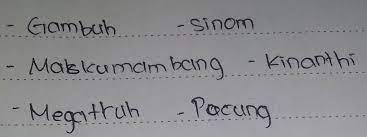 - Gambuh - Sinom
- Maskumambang - Kinanthi
- Megatruh - Pocung